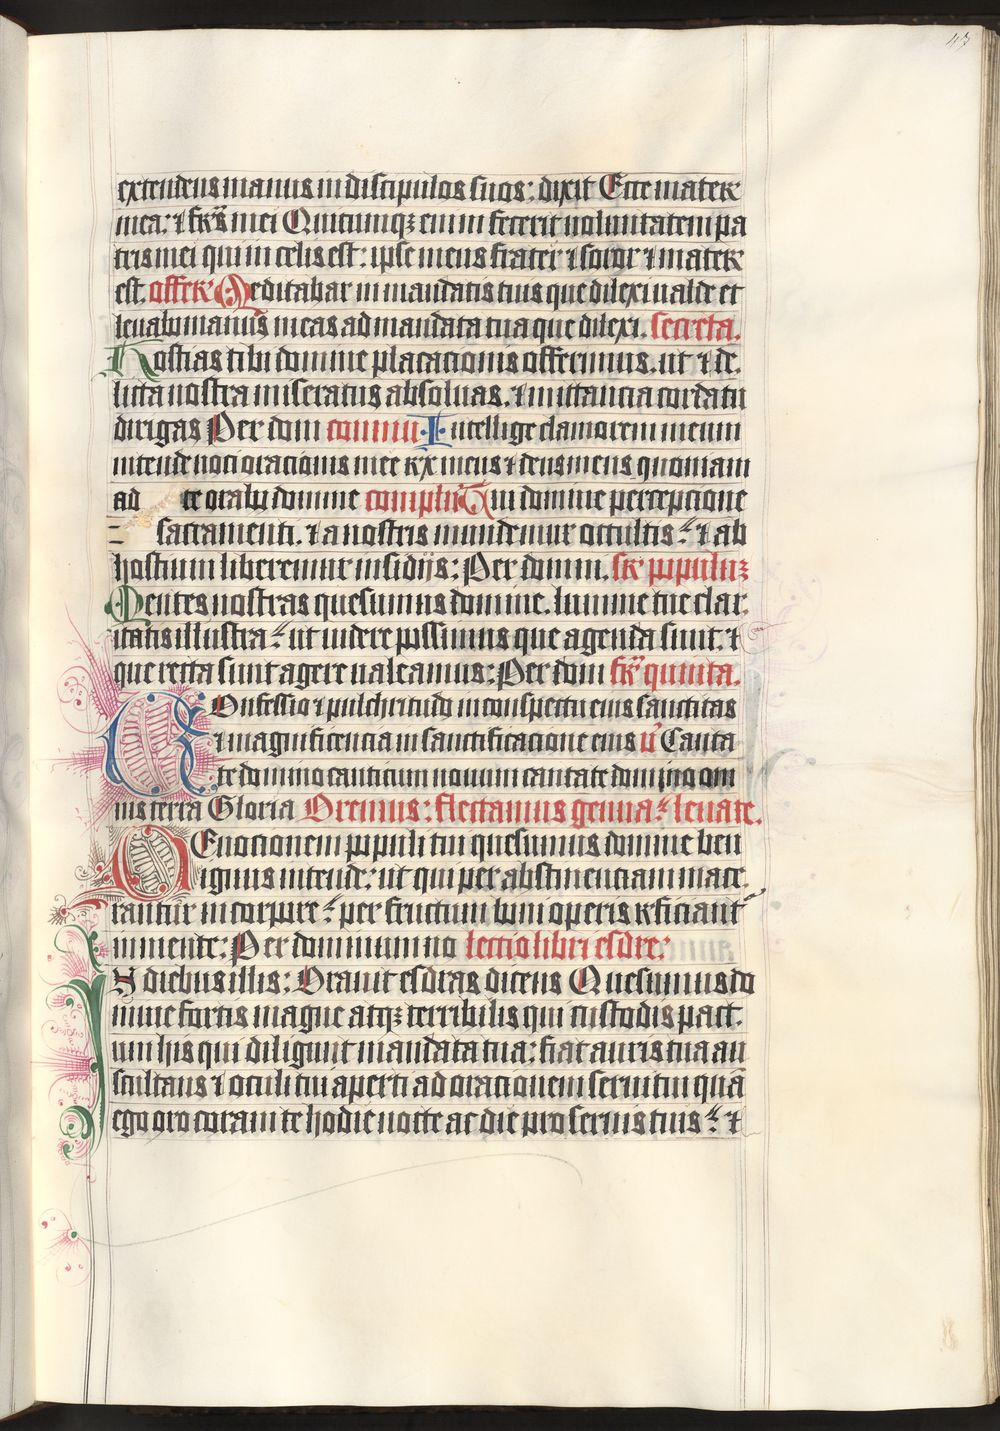 47
extendens manus in discipulos suos: dixit Ecce mater
mea: ⁊ fr̃s mei Quicumqꝫ enim fecerit voluntatem pa
tris mei qui in celis est: ipse meus frater ⁊ soror ⁊ mater
est. offer̃ Meditabar in mandatis tuis que dilexi valde et
levabo manus meas ad mandata tua que dilexi. secreta.
Hostias tibi domine placacionis offerimus. ut ⁊ de
licta nostra miseratus absolvas. ⁊ nuttancia corda tu
dirigas Per dom commu Intellige clamorem meum
intende voci oracionis mee rex meus ⁊ deus meus quoniam
ad te orabo domine complꝰ Tui domine percepcione
sacramenti. ⁊ a nostris mundemur occultis: ⁊ ab
hostium liberemur insidijs: Per domin. sr̃ populuꝫ
Mentes nostras quesumus domine. lumine tue clar
itatis illustra: ut videre possimus que agenda sunt. ⁊
que recta sunt agere valeamus: Per dom fr̃ quinta.
COnfessio ⁊ pulchritudo in conspectu eius sanctitas
⁊ magnificencia in sanctificacione eius v̓ Canta
te domino canticum novum cantate domino om
nis terra Gloria Oremus: flectamus genua: levate.
DEvocionem populi tui quesumus domine ben
ignus intende: ut qui per abstinenciam mace
rantur in corpore: per fructum boni operis reficiant᷑
in mente: Per dominum no lectio libri esdre:
IN diebus illis: Oravit esdras dicens Quesumus do
mine fortis magne atqꝫ terribilis qui custodis pact
um his qui diligunt mandata tua: fiat auris tua au
scultans ⁊ occuli tui aperti ad oracionem servi tui quā
ego oro coram te hodie nocte ac die pro servis tuis: ⁊